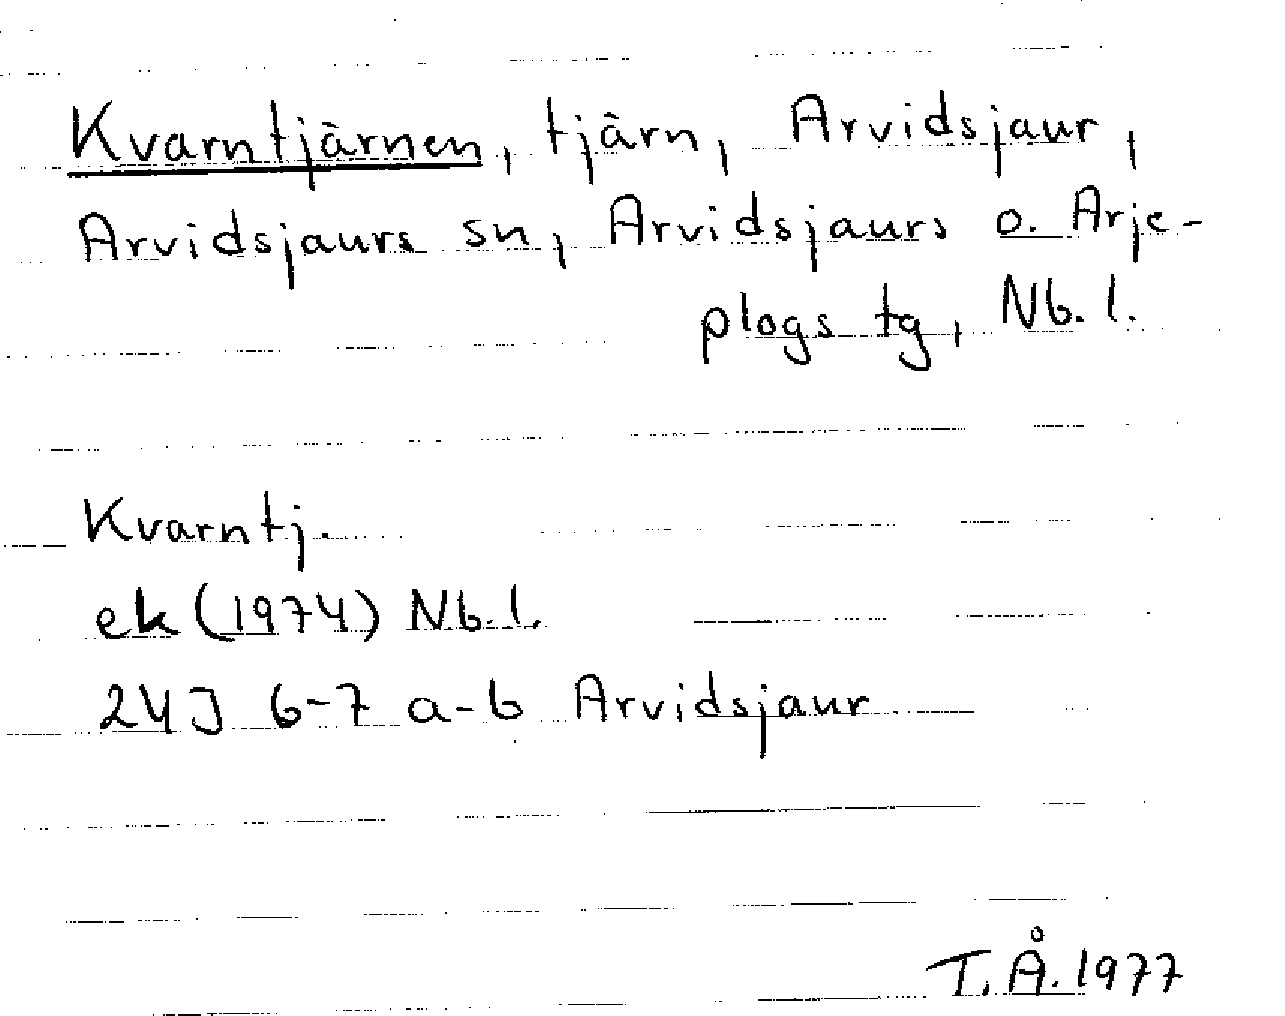 Kvarntjärnen, tjärn, Arvidsjaur,
Arvidsjaurs sn, Arvidsjaurs o. Arje-
plogs tg, Nb. l.
Kvarntj.
ek (1974) Nb. l.
24J 6-7 a-b Arvidsjaur
T. Å. 1977